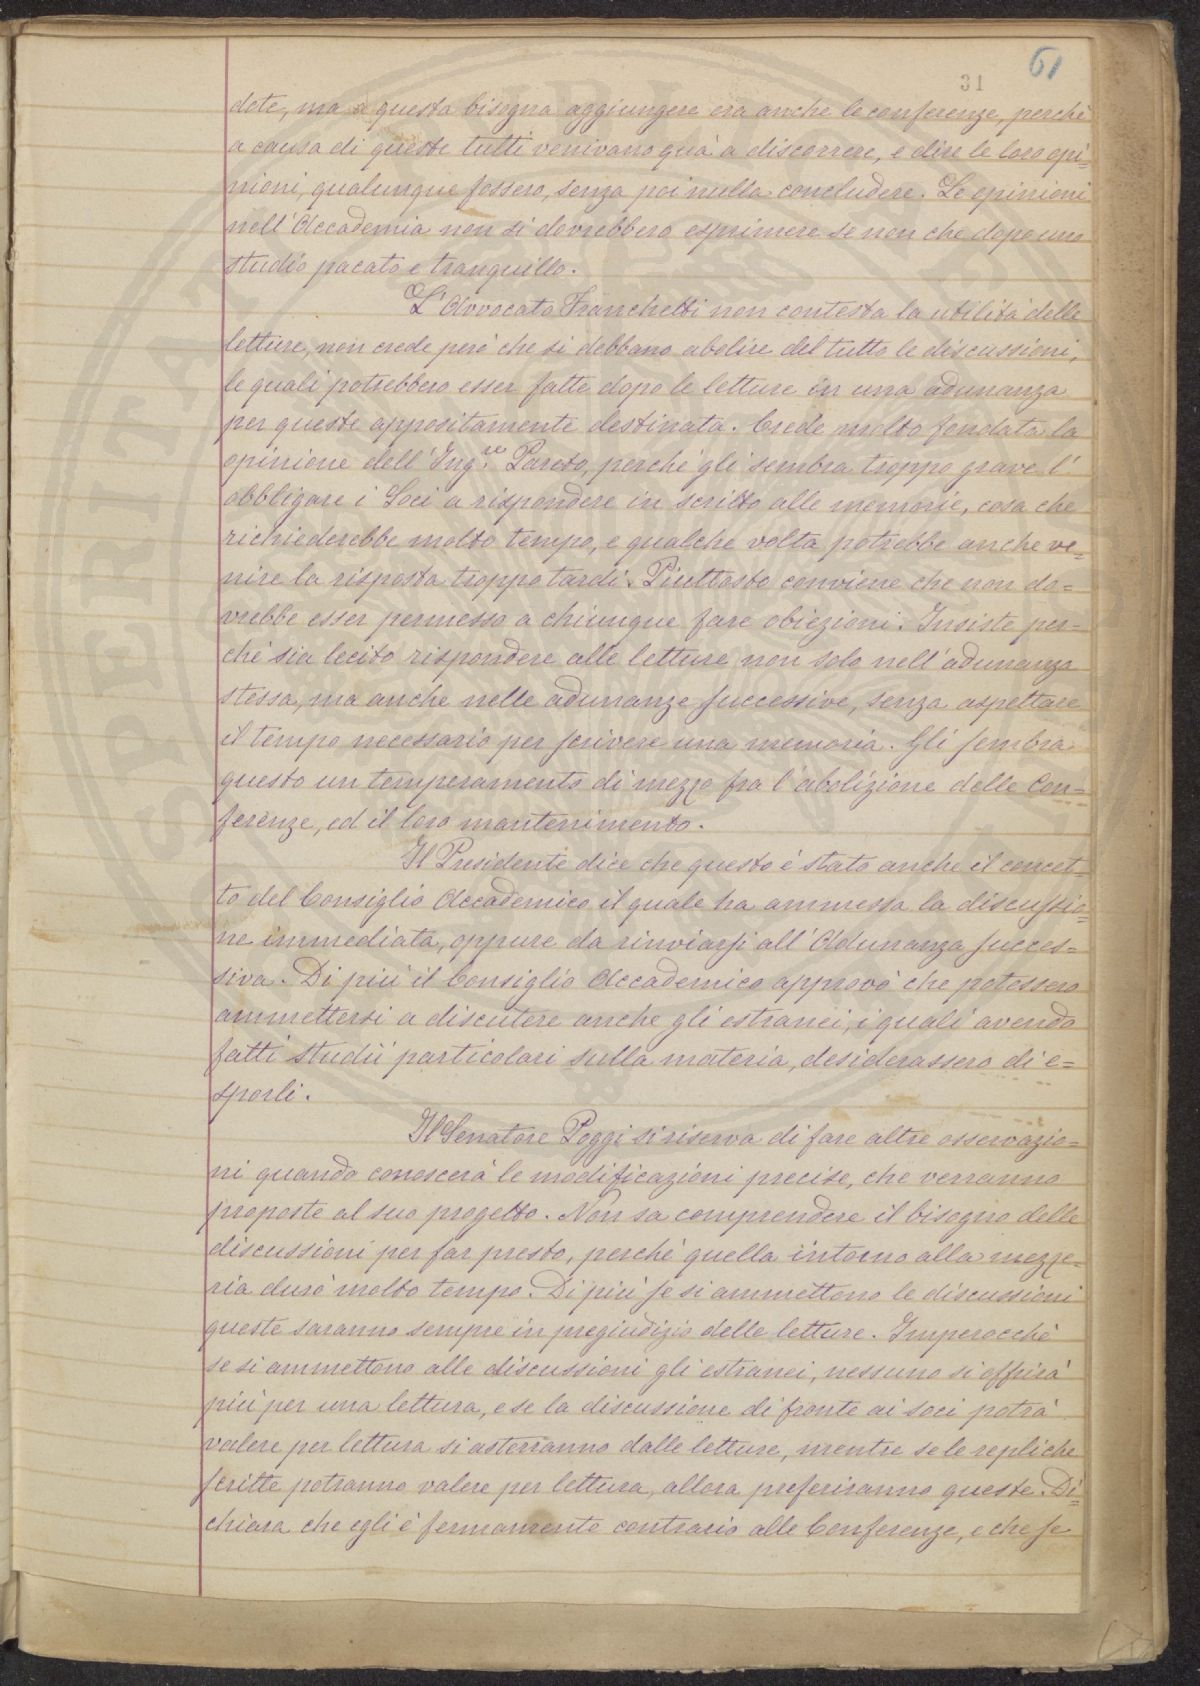 31 61
dete, ma a questa bisogna aggiungere era anche le conferenze, perchè
a causa di queste tutti venivano quà a discorrere, e dire le loro opi=
nioni, qualunque fossero, senza poi nulla concludere. Le opinioni
nell'Accademia non si dovrebbero esprimere se non che dopo uno
studio pacato e tranquillo.
L'Avvocato Franchetti non contesta la utilità delle
letture, non crede però che si debbano abolire del tutto le discussioni,
le quali potrebbero esser fatte dopo le letture in una adunanza
per queste appositamente destinata. Crede molto fondata la
opinione dell'Ing.re Pareto, perchè gli sembra troppo grave l'
obbligare i Soci a rispondere in scritto alle memorie, cosa che
richiederebbe molto tempo, e qualche volta potrebbe anche ve=
nire la risposta troppo tardi. Piuttosto conviene che non do=
vrebbe esser permesso a chiunque fare obiezioni. Insiste per=
chè sia lecito rispondere alle letture non solo nell'adunanza
stessa, ma anche nelle adunanze successive, senza aspettare
il tempo necessario per scrivere una memoria. Gli sembra
questo un temperamento di mezzo fra l'abolizione delle Con=
ferenze, ed il loro mantenimento.
Il Presidente dice che questo è stato anche il concet=
to del Consiglio Accademico il quale ha ammessa la discussio=
ne immediata, oppure da rinviarsi all'Adunanza succes=
siva. Di più il Consiglio Accademico approvò che potessero
ammettersi a discutere anche gli estranei, i quali avendo
fatti studii particolari sulla materia, desiderassero di e=
sporli.
Il Senatore Poggi si riserva di fare altre osservazio=
ni quando conoscerà le modificazioni precise, che verranno
proposte al suo progetto. Non sa comprendere il bisogno delle
discussioni per far presto, perchè quella intorno alla mezze=
ria durò molto tempo. Di più se si ammettono le discussioni
queste saranno sempre in pregiudizio delle letture. Imperocchè
se si ammettono alle discussioni gli estranei, nessuno si offrirà
più per una lettura, e se la discussione di fronte ai soci potrà
valere per lettura si asterranno dalle letture, mentre se le repliche
scritte potranno valere per lettura, allora preferiranno queste. Di=
chiara che egli è fermamente contrario alle Conferenze, e che se